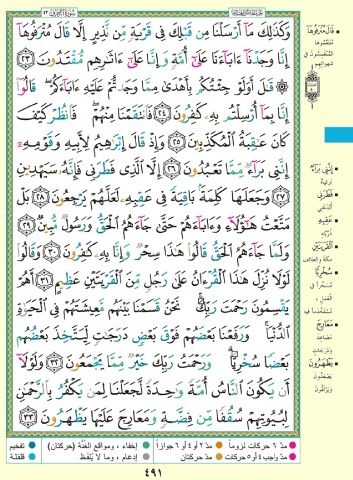 وَكَذَٰلِكَ مَآ أَرْسَلْنَا مِن قَبْلِكَ فِى قَرْيَةٍ مِّن نَّذِيرٍ إِلَّا قَالَ مُتْرَفُوهَآ
إِنَّا وَجَدْنَآ ءَابَآءَنَا عَلَىٰٓ أُمَّةٍ وَإِنَّا عَلَىٰٓ ءَاثَـٰرِهِم مُّقْتَدُونَ ٢٣
۞ قَـٰلَ أَوَلَوْ جِئْتُكُم بِأَهْدَىٰ مِمَّا وَجَدتُّمْ عَلَيْهِ ءَابَآءَكُمْ ۖ قَالُوٓا۟
إِنَّا بِمَآ أُرْسِلْتُم بِهِۦ كَـٰفِرُونَ ٢٤ فَٱنتَقَمْنَا مِنْهُمْ ۖ فَٱنظُرْ كَيْفَ
كَانَ عَـٰقِبَةُ ٱلْمُكَذِّبِينَ ٢٥ وَإِذْ قَالَ إِبْرَٰهِيمُ لِأَبِيهِ وَقَوْمِهِۦٓ
إِنَّنِى بَرَآءٌ مِّمَّا تَعْبُدُونَ ٢٦ إِلَّا ٱلَّذِى فَطَرَنِى فَإِنَّهُۥ سَيَهْدِينِ
٢٧ وَجَعَلَهَا كَلِمَةًۢ بَاقِيَةً فِى عَقِبِهِۦ لَعَلَّهُمْ يَرْجِعُونَ ٢٨ بَلْ
مَتَّعْتُ هَـٰٓؤُلَآءِ وَءَابَآءَهُمْ حَتَّىٰ جَآءَهُمُ ٱلْحَقُّ وَرَسُولٌ مُّبِينٌ ٢٩
وَلَمَّا جَآءَهُمُ ٱلْحَقُّ قَالُوا۟ هَـٰذَا سِحْرٌ وَإِنَّا بِهِۦ كَـٰفِرُونَ ٣٠ وَقَالُوا۟
لَوْلَا نُزِّلَ هَـٰذَا ٱلْقُرْءَانُ عَلَىٰ رَجُلٍ مِّنَ ٱلْقَرْيَتَيْنِ عَظِيمٍ ٣١ أَهُمْ
يَقْسِمُونَ رَحْمَتَ رَبِّكَ ۚ نَحْنُ قَسَمْنَا بَيْنَهُم مَّعِيشَتَهُمْ فِى ٱلْحَيَوٰةِ
ٱلدُّنْيَا ۚ وَرَفَعْنَا بَعْضَهُمْ فَوْقَ بَعْضٍ دَرَجَـٰتٍ لِّيَتَّخِذَ بَعْضُهُم
بَعْضًا سُخْرِيًّا ۗ وَرَحْمَتُ رَبِّكَ خَيْرٌ مِّمَّا يَجْمَعُونَ ٣٢ وَلَوْلَآ
أَن يَكُونَ ٱلنَّاسُ أُمَّةً وَٰحِدَةً لَّجَعَلْنَا لِمَن يَكْفُرُ بِٱلرَّحْمَـٰنِ
لِبُيُوتِهِمْ سُقُفًا مِّن فِضَّةٍ وَمَعَارِجَ عَلَيْهَا يَظْهَرُونَ ٣٣
قَالَ مُتْرَفُوهَا
إِنَّنِي بَرَاءٌ
فَطَرَنِي
عَقِبِهِ
القَرْيَتَيْنِ
مكة والطائف
سُخْرِيًّا
مَعَارِجَ
يَظْهَرُونَ
مدّ ٦ حركات لزوماً
مدّ ٢ أو ٤ أو ٦ جوازاً
إخفاء، ومواقع الغُنَّة (حركتان)
تفخيم
مدّ واجب ٤ أو ٥ حركات
مدّ حركتان
إدغام، وما لا يُلفَظ
قلقلة
٤٩١